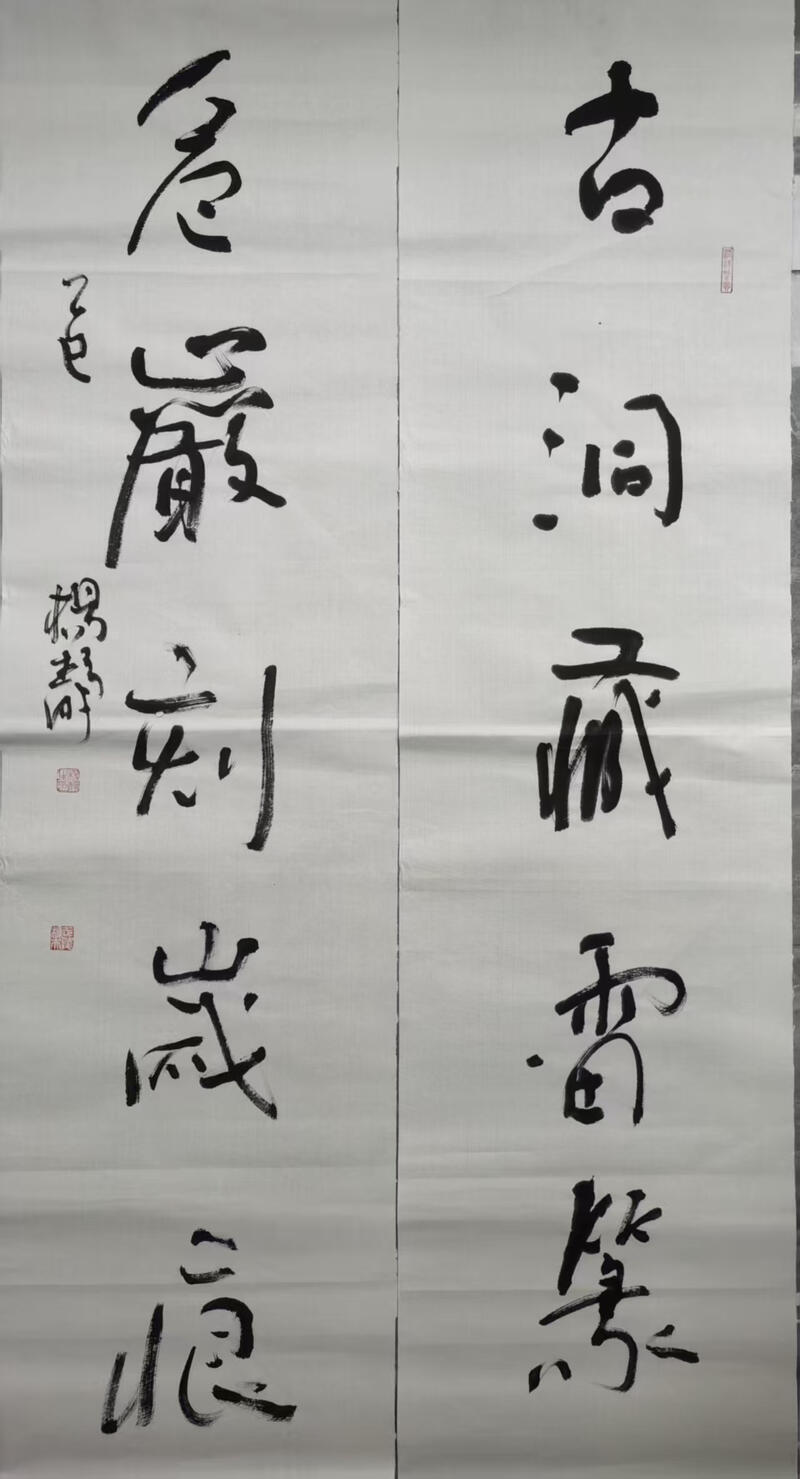 古洞藏雷篆
危巖刻歲痕
乙巳
楊